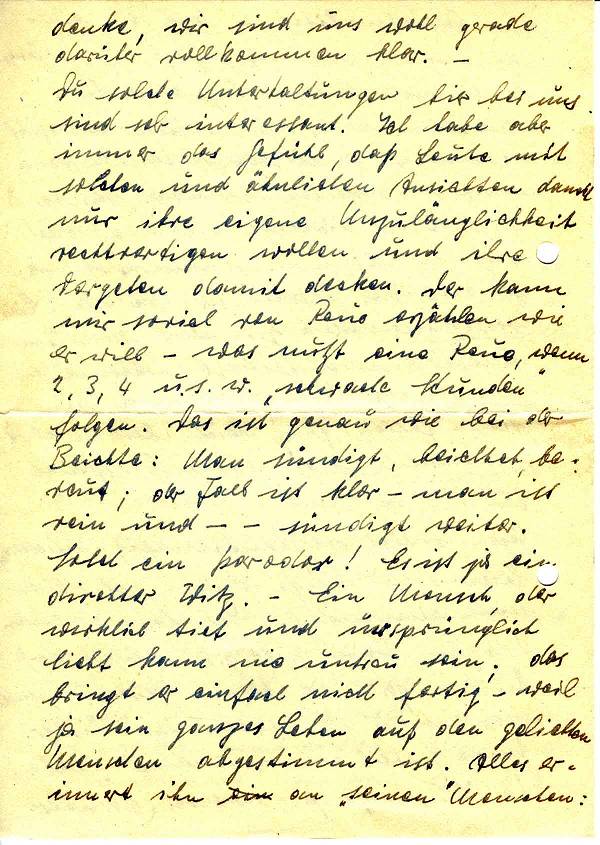 denke, wir sind uns wohl gerade
darüber vollkommen klar. –
Du solche Unterhaltungen hier bei uns
sind sehr interessant. Ich habe aber
immer das Gefühl, daß Leute mit
solchen und ähnlichen Ansichten damit
nur ihre eigene Unzulänglichkeit
rechtfertigen wollen und ihre
Vergehen damit decken. Der kann
mir soviel von Reue erzählen wie
er will – was nützt eine Reue, wenn
2, 3, 4 u.s.w. „schwache Stunden"
folgen. Das ist genau wie bei der
Beichte: Man sündigt, beichtet, be-
reut; der Fall ist klar – man ist
rein und – – sündigt weiter.
Solch ein paradox! Es ist ja ein
direkter Witz. – Ein Mensch, der
wirklich tief und ursprünglich
liebt kann nie untreu sein, das
bringt er einfach nicht fertig – weil
ja sein ganzes Leben auf den geliebten
Menschen abgestimmt ist. Alles er-
innert ihn ein an „seinen" Menschen: